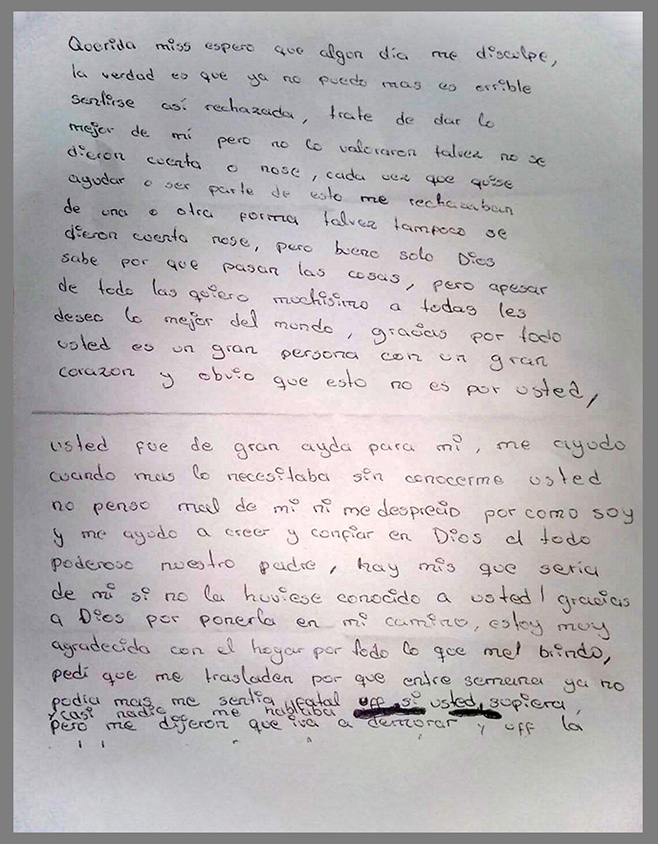 Querida miss espero que algon dia me disculpe,
la verdad es que ya no puedo mas es orrible
sentirse así rechazada, trate de dar lo
mejor de mí pero no lo valoraron talvez no se
dieron cuenta o nose, cada vez que quise
ayudar o ser parte de esto me rechazaban
de una o otra forma talvez tampoco se
dieron cuenta nose, pero bueno solo Dios
sabe por que pasan las cosas, pero apesar
de todo las quiero muchisimo a todas les
deseo lo mejor del mundo, gracias por todo
usted es un gran persona con un gran
corazon y obvio que esto no es por usted,
usted fue de gran ayda para mi, me ayudo
cuando mas lo necesitaba sin conocerme usted
no penso mal de mi ni me desprecio por como soy
y me ayudo a creer y confiar en Dios el todo
poderoso nuestro padre, hay mis que seria
de mi si no la huviese conocido a usted! gracias
a Dios por ponerla en mi camino, estoy muy
agradecida con el hogar por todo lo que me brindo,
pedi que me trasladen por que entre semana ya no
podia mas me sentia fatal uff si usted supiera,
y casi nadie me hablaba
pero me dijeron que iva a demorar y uff la